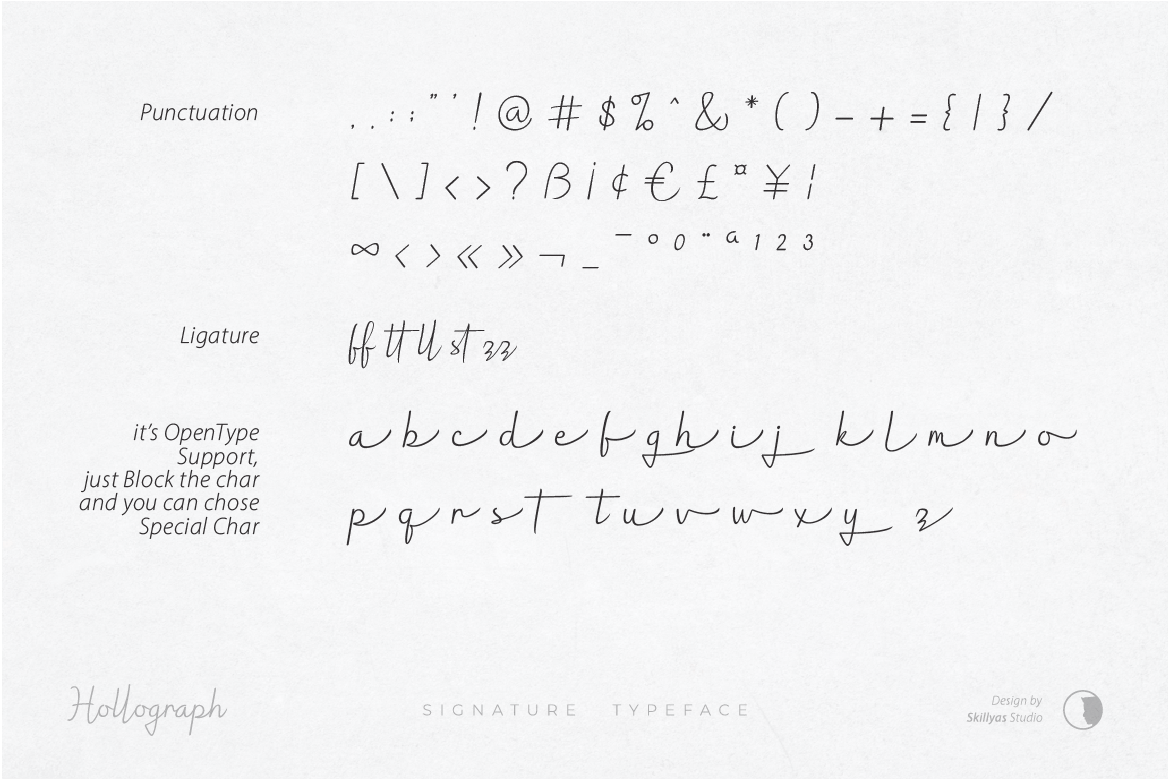 Punctuation
. , : ; " ' ! @ # $ % ^ & * ( ) - + = { | } /
[ \ ] < > ? ß i ¢ € £ ¤ ¥ ¦
∞ ‹ › « » ¬ _ ¯ ° º ¨ ª ¹ ² ³
Ligature
ff tt ll st zz
it's OpenType
Support,
just Block the char
and you can chose
Special Char
a b c d e f g h i j k l m n o
p q r s t t u v w x y z
Hollograph
SIGNATURE TYPEFACE
Design by
Skillyas Studio